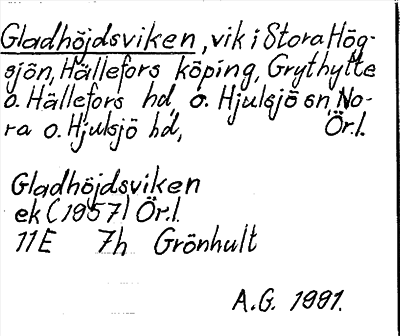 Gladhöjdsviken, vik i Stora Hög-
sjön, Hällefors köping, Grythytte
o. Hällefors hd, o. Hjulsjö sn, No-
ra o. Hjulsjö hd, Ör.l.
Gladhöjdsviken
ek (1957) Ör.l.
11E 7h Grönhult
A.G. 1991.